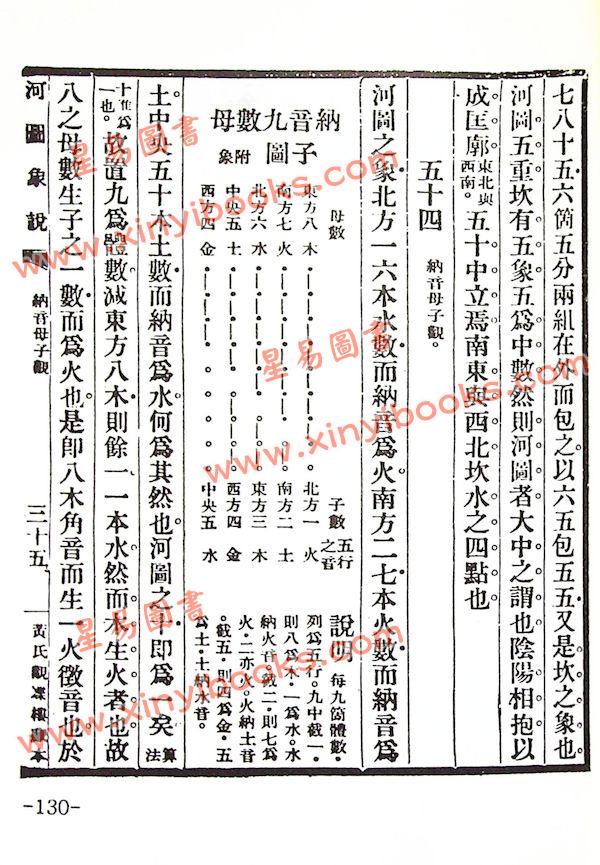 七八十五六箇五分兩組在外而包之以六五包五五又是坎之象也
河圖五重坎有五象五爲中數然則河圖者大中之謂也陰陽相抱以
成匡廓東北與西南。五十中立焉南東與西北坎水之四點也
五十四 納音母子觀。
河圖之象北方一六本水數而納音爲火南方二七本火數而納音爲
納音九數母子圖 附象
母數
子數 五行之音
東方八 木 北方一 火
南方七 火 南方二 土
北方六 水 東方三 木
中央五 土 西方四 金
西方四 金 中央五 水
說明 每九箇體數。
列爲五行。九中截一。
則八爲木。一爲水。水
納火音。截二。則七爲
火。二亦火。火納土音
。截五。則四爲金。五
爲土。土納水音。
土中央五十本土數而納音爲水何爲其然也河圖之十即爲一矣算法
十進爲一也。故置九爲體數減東方八木則餘一一本水然而木生火者也故
八之母數生子之一數而爲火也是即八木角音而生一火徵音也於
河圖象說 納音母子觀 三十五 黃氏觀漅樓繪本
-130-
星易圖書
www.xinyibooks.com
星易圖書
www.xinyibooks.com
星易圖書
www.xinyibooks.com